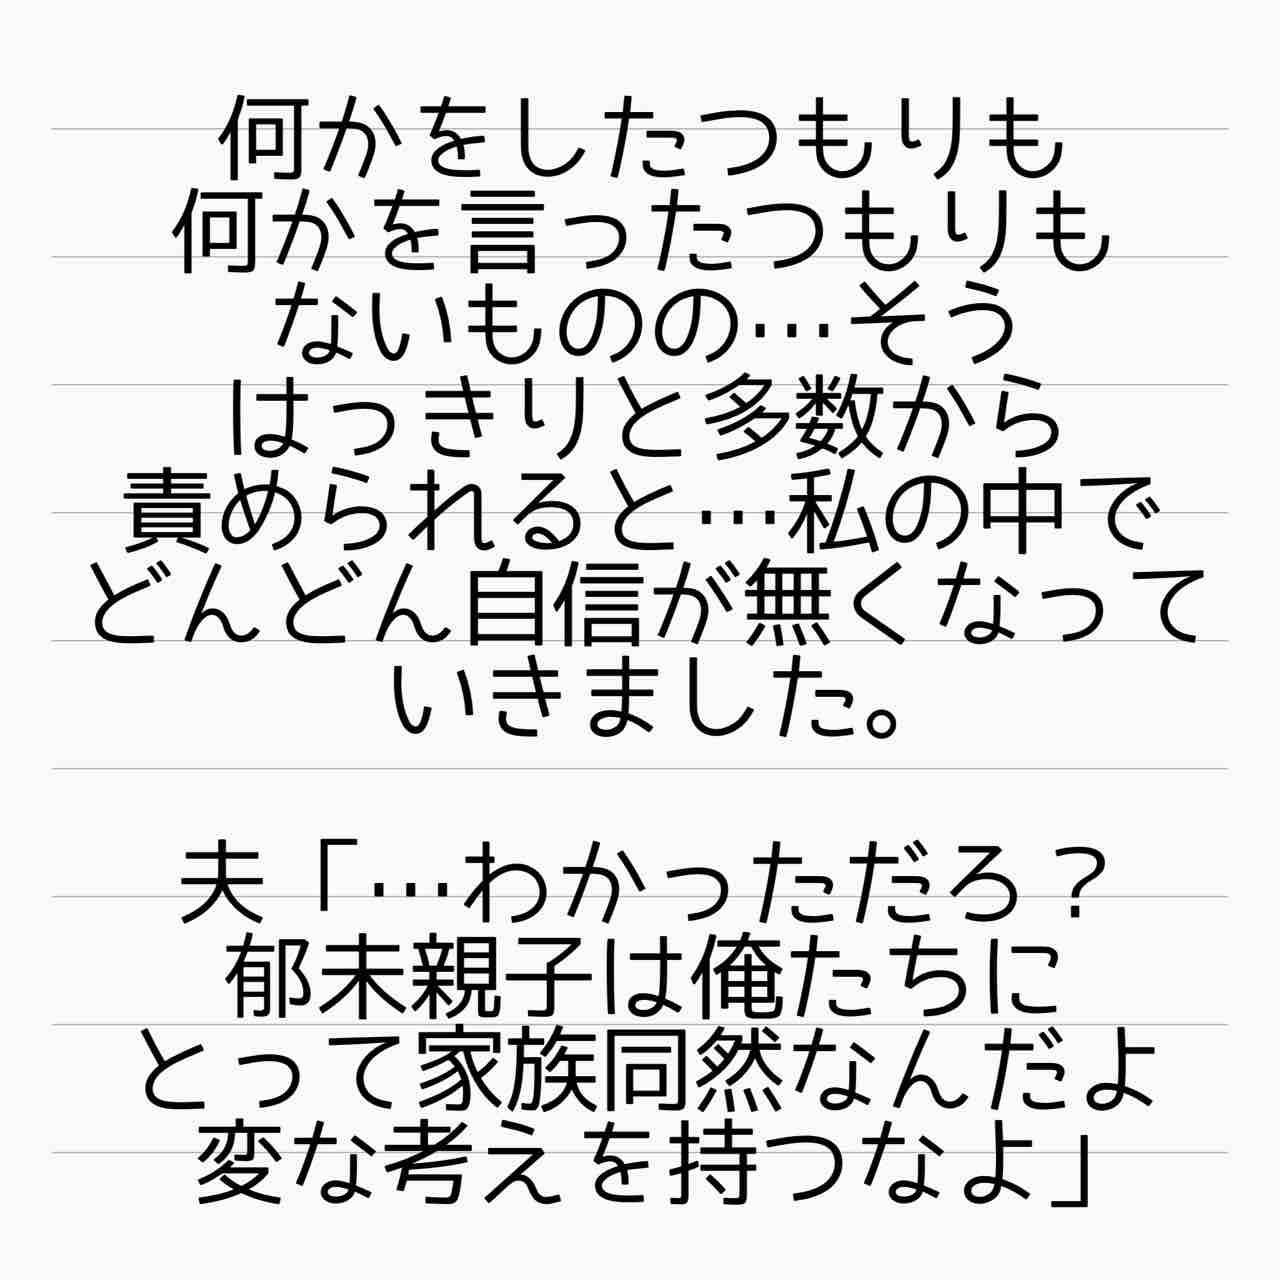 何かをしたつもりも
何かを言ったつもりも
ないものの…そう
はっきりと多数から
責められると…私の中で
どんどん自信が無くなって
いきました。
夫「…わかっただろ？
郁未親子は俺たちに
とって家族同然なんだよ
変な考えを持つなよ」